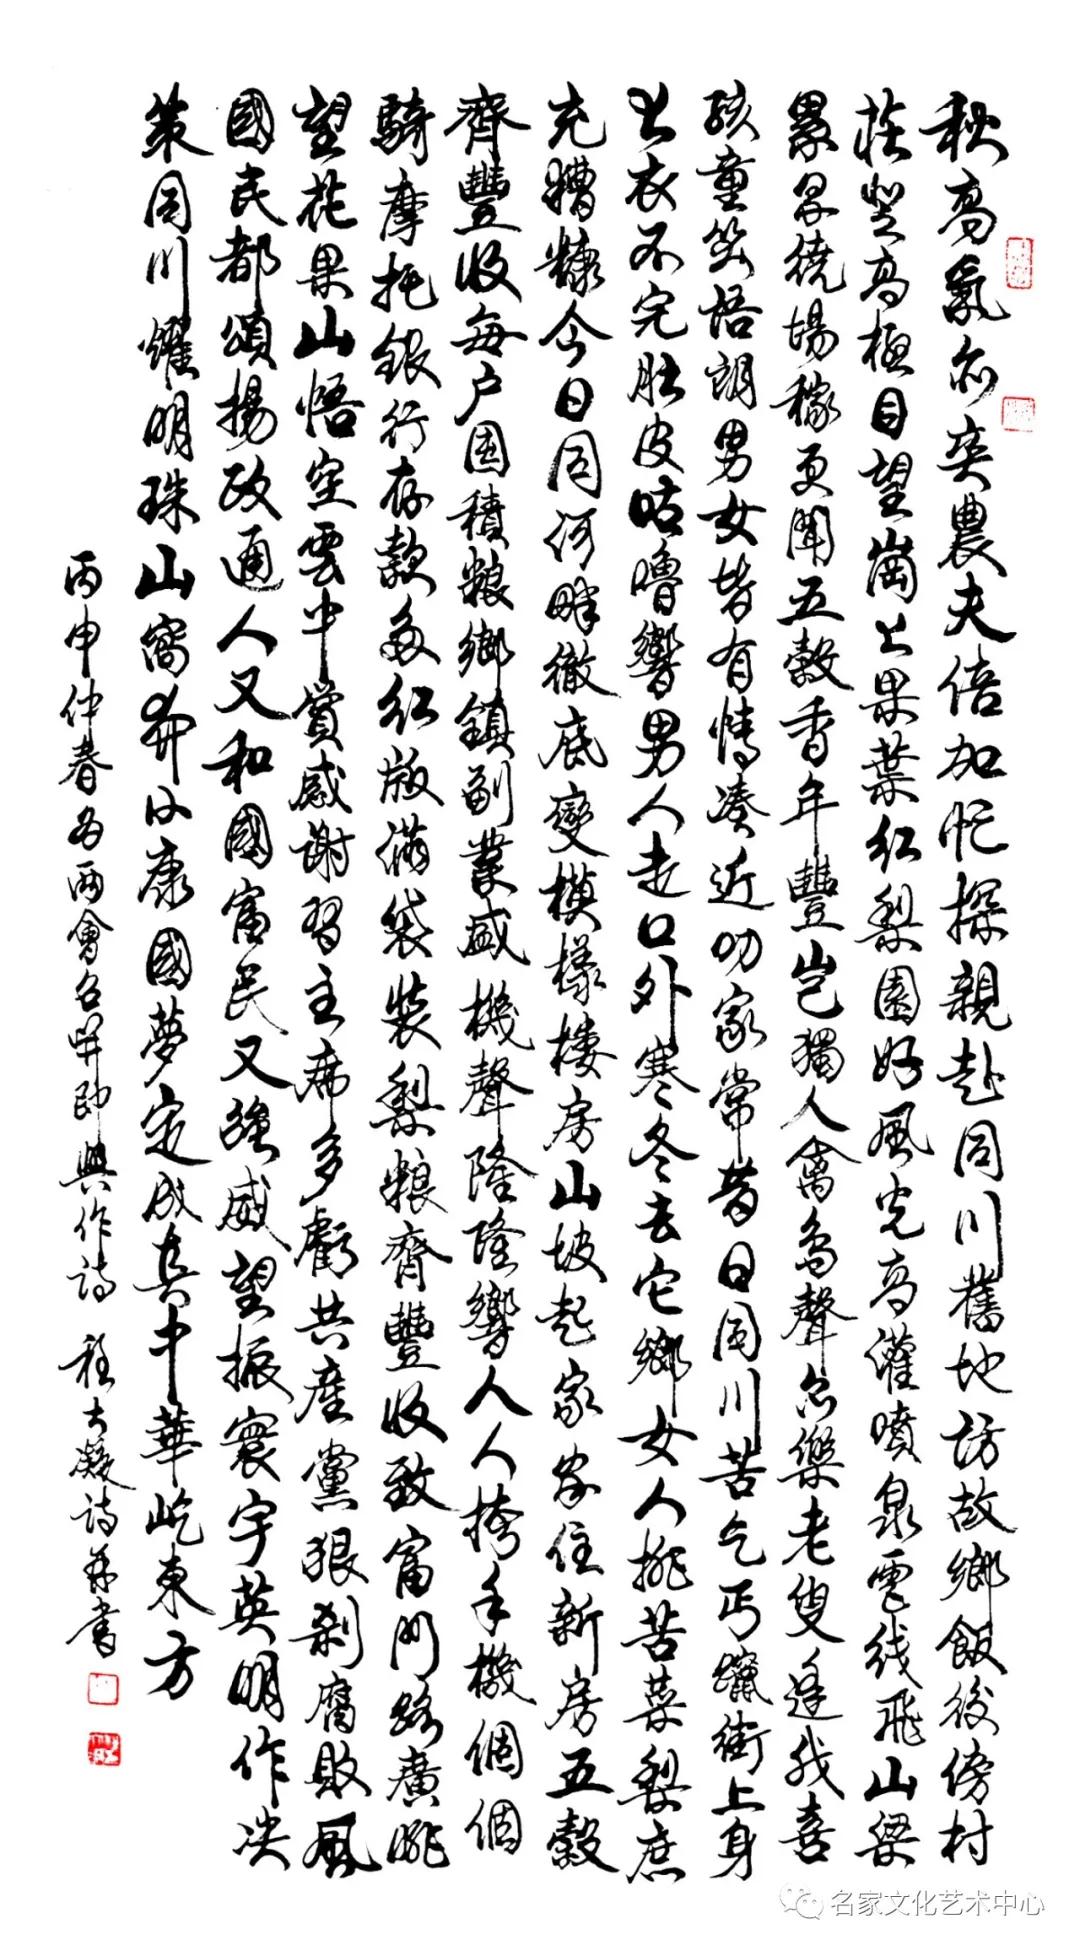 秋高氣亦爽農夫倍加忙探親赴同川舊地訪故鄉飯後傍村
莊登高極目望崗上果葉红梨園好風光高灌噴泉電线飛山梁
累尕繞場稼更聞五穀香年豐豈獨人禽鳥聲亦樂老叟逢我喜
孩童笑語朗男女皆有情湊近叨家常昔日同川苦乞丐躥街上身
上衣不完肚皮咕嚕響男人走口外寒冬去它鄉女人挑苦菜梨庶
充糟糠今日同河畔徹底變模樣楼房山坡起家家住新房五穀
齊豐收每户囤積粮鄉鎮副業盛機聲隆隆響人人挎手機個個
騎摩托銀行存款多红版满袋裝梨粮齊豐收致富門路廣眺
望花果山悟空雲中賞感谢習主席多虧共產黨狠刹腐敗風
國民都頌揚政通人又和國富民又強威望振寰宇英明作决
策同川燿明珠山窩奔小康國夢定成真中華屹東方
丙申仲春為兩會召開即興作诗 大凝诗并書
名家文化艺术中心